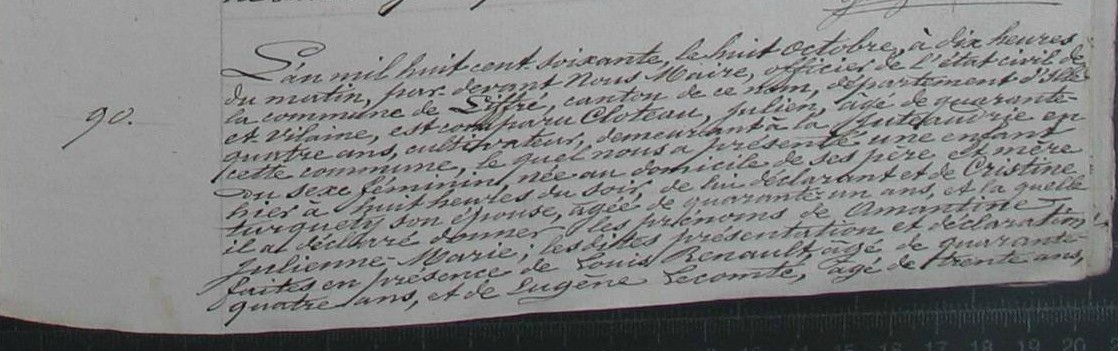 L'an mil huit cent soixante, le huit octobre, à dix heures
du matin, par devant Nous Maire, officier de l'état civil de
la commune de Liffré, canton de ce nom, département d'Ille-
et-Vilaine, est comparu Cloteau, Julien, âgé de quarante-
quatre ans, cultivateur, demeurant à la en
cette commune, le quel nous a présenté une enfant
du sexe féminin, née au domicile de ses père et mère
hier à huit heures du soir, de lui déclarant et de Cristine
Turquety son épouse, âgée de quarante-un ans, et la quelle
il a déclaré donner les prénoms de Amantine-
Julienne-Marie; lesdittes présentation et déclaration
faites en présence de Louis Renault, âgé de quarante-
quatre ans, et de Eugène Lecomte, âgé de trente ans,
90.